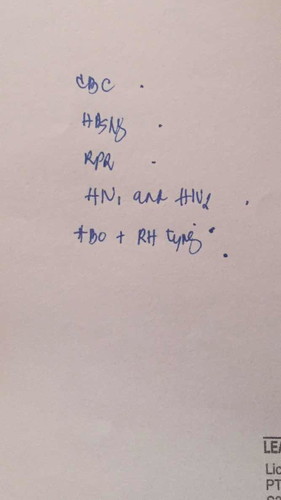 CBC .
HBsAg .
RPR .
HIV1 and HIV2 .
ABO + RH typing .
LEA
Lic
PT